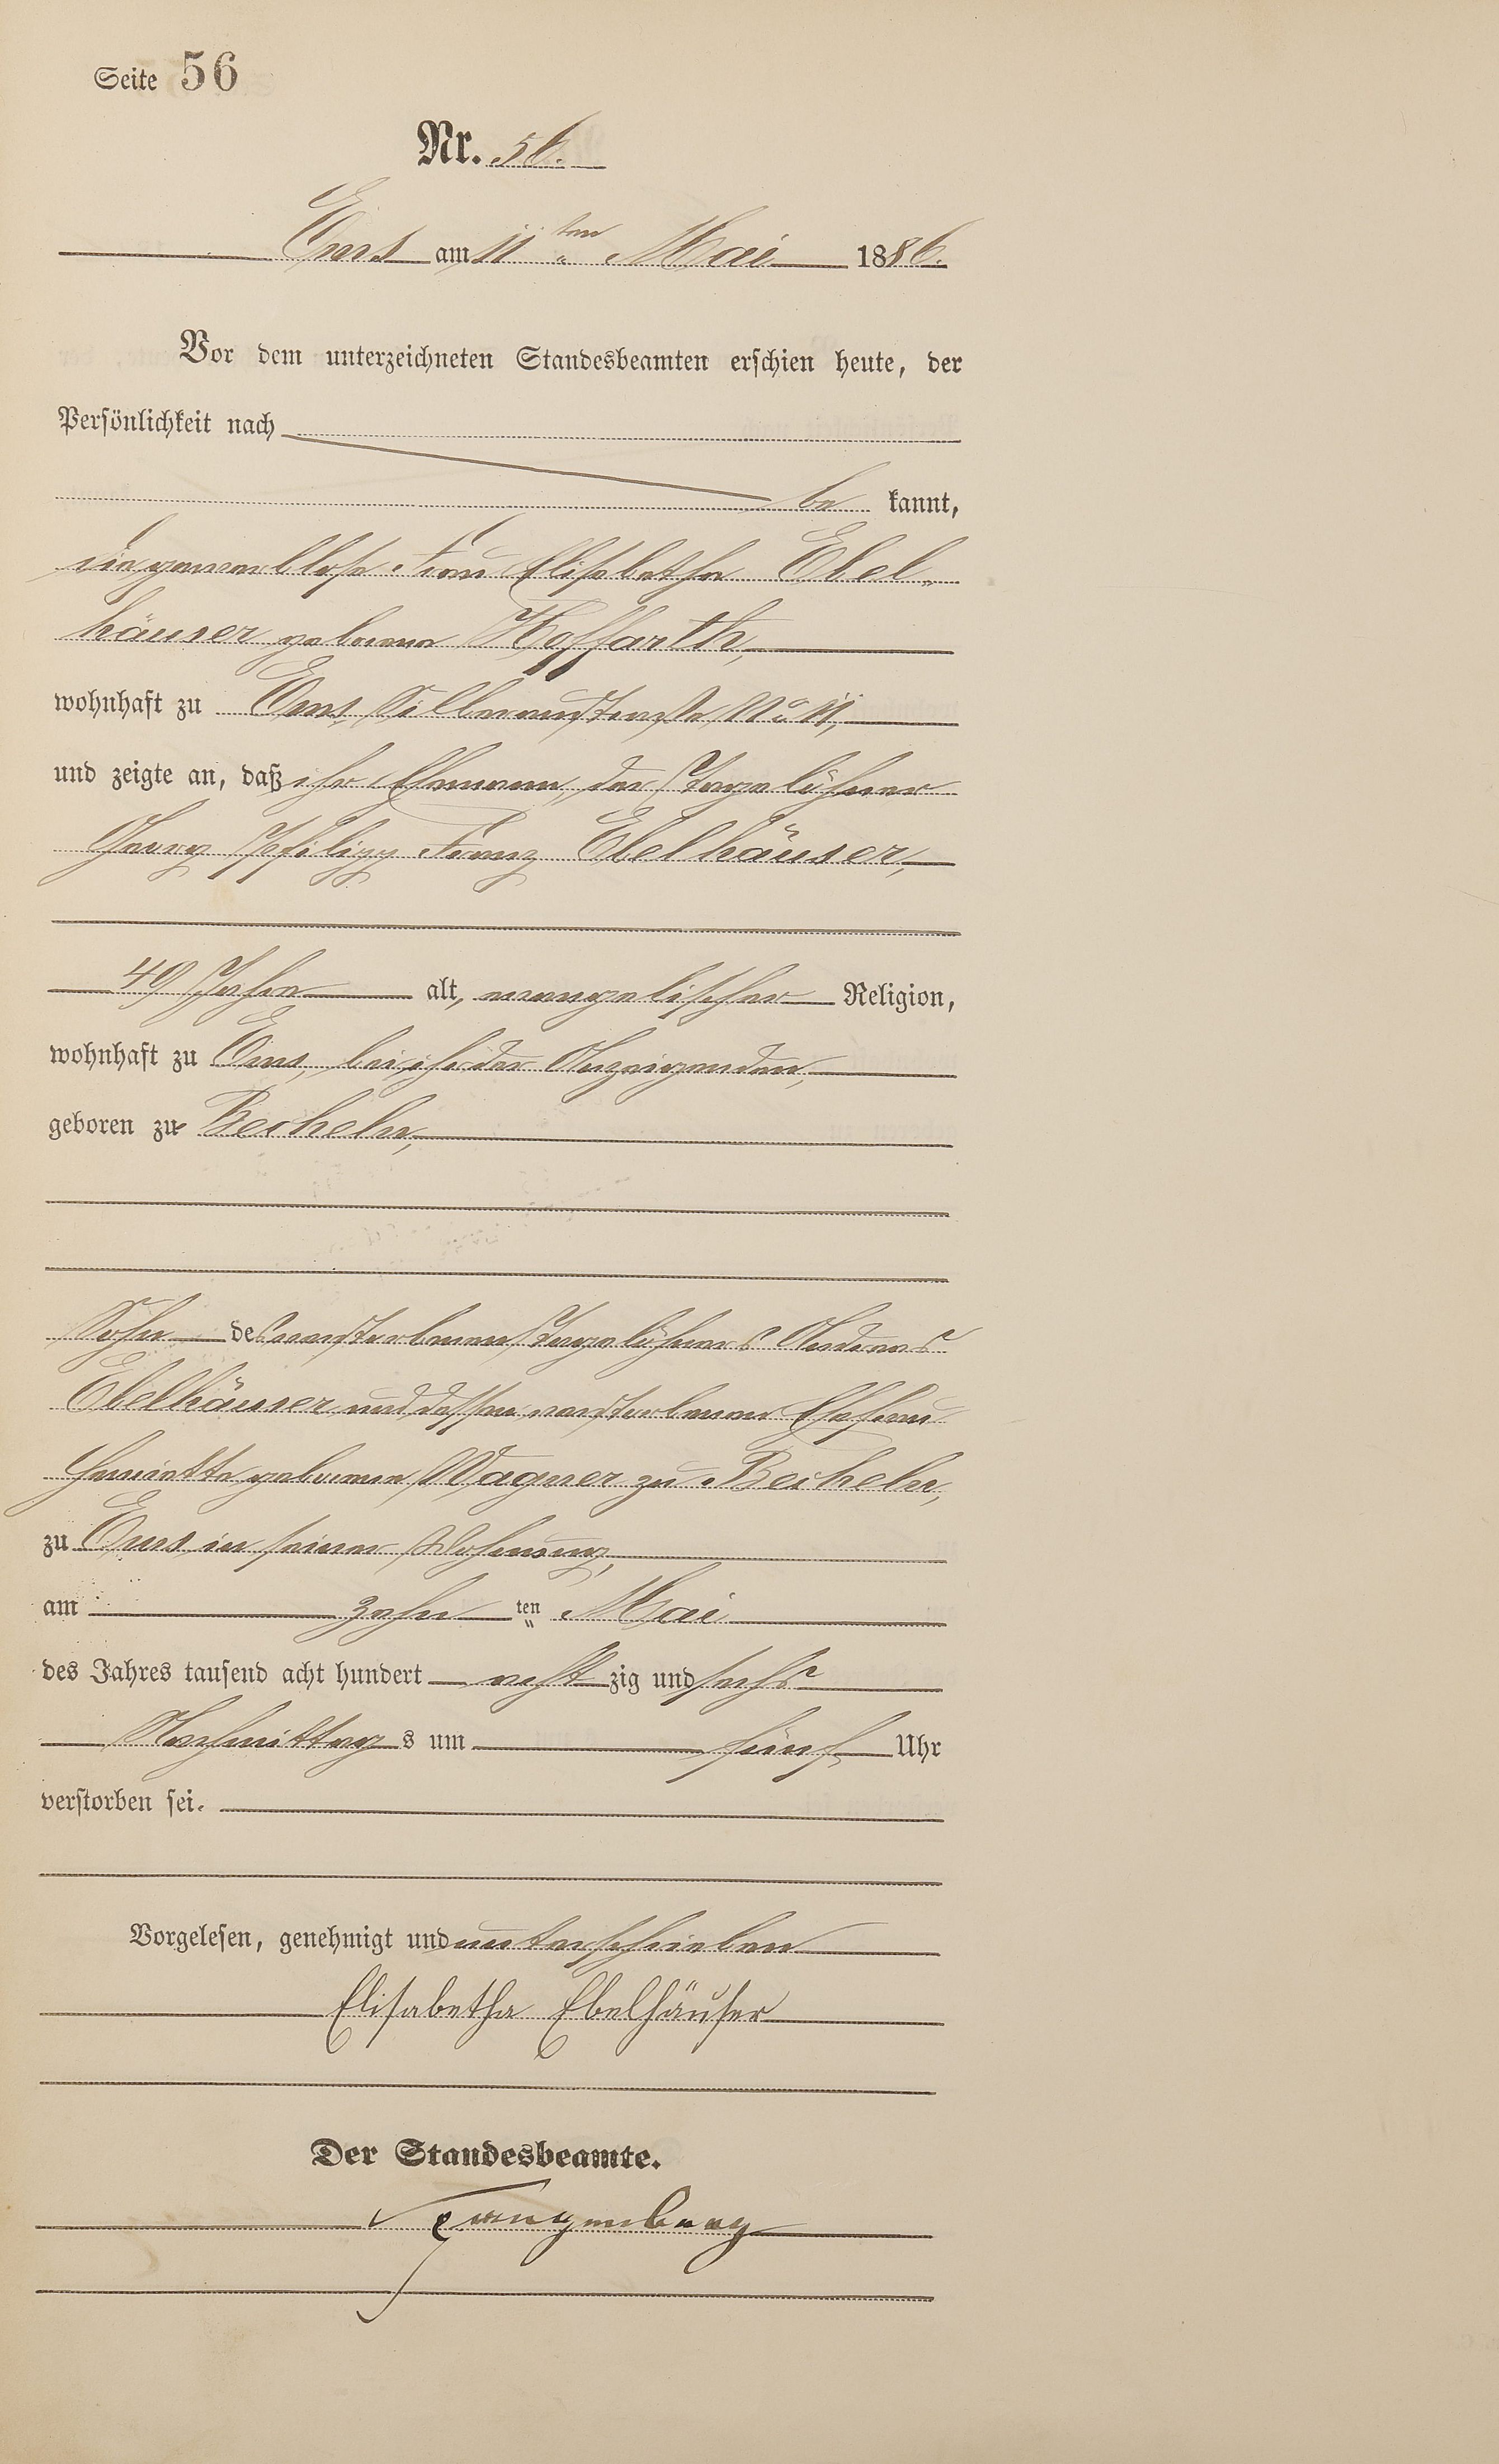 Seite 56
Nr. 56.
Ems am 11ten Mai 1886.
Vor dem unterzeichneten Standesbeamten erschien heute, der
Persönlichkeit nach
be kannt,
die gewerblose Frau Elisabetha Ebel-
häuser geborene Hoffarth,
wohnhaft zu Ems, Silberaustraße No 11,
und zeigte an, daß ihr Ehemann, der Tagelöhner
Georg Philipp Franz Ebelhäuser,
49 Jahre alt, evangelischer Religion,
wohnhaft zu Ems, bei ihr der Anzeigenden,
geboren zu Becheln,
Sohn des verstorbenen Tagelöhners Andreas
Ebelhäuser und dessen verstorbenen Ehefrau
Henriette geborene Wagner zu Becheln,
zu Ems in seiner Wohnung,
am zehn ten Mai
des Jahres tausend acht hundert acht zig und sechs
Nachmittag s um fünf Uhr
verstorben sei.
Vorgelesen, genehmigt und unterschrieben
Elisabetha Ebelhäuser
Der Standesbeamte.